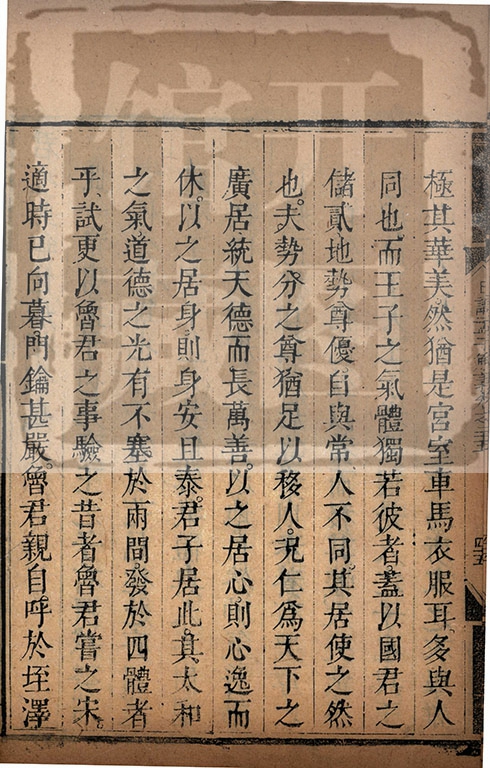 極其華美然猶是宮室車馬衣服耳多與人
同也而王子之氣體獨若彼者蓋以國君之
儲貳地勢尊優自與常人不同其居使之然
也夫勢分之尊猶足以移人況仁爲天下之
廣居統天德而長萬善以之居心則心逸而
休以之居身則身安且泰君子居此其太和
之氣道德之光有不塞於兩間發於四體者
乎試更以魯君之事驗之昔者魯君嘗之宋
適時已向暮門鑰甚嚴魯君親自呼於垤澤